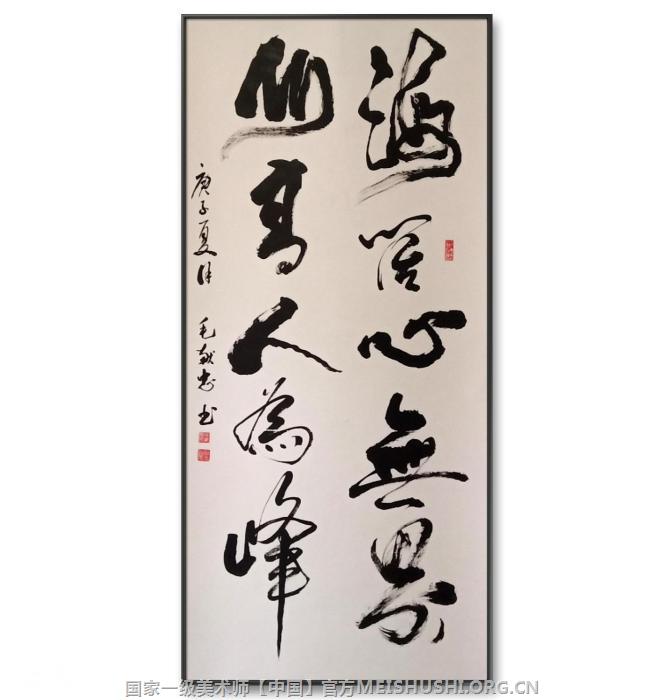 海闊心無界
山高人為峰
庚子夏 毛献忠书
国家一级美术师【中国】官方MEISHUSHI.ORG.CN